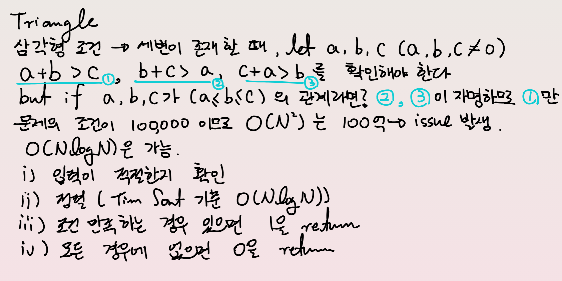 Triangle
삼각형 조건 → 세변이 존재할 때, let a, b, c (a, b, c ≠ 0)
a+b > c ①, b+c > a ②, c+a > b ③를 확인해야 한다
but if a, b, c가 (a≤b≤c) 의 관계라면? ②, ③이 자명하므로 ①만
문제의 조건이 100,000 이므로 O(N²) 는 100억→ issue 발생.
O(N log N)은 가능.
i) 입력이 적절한지 확인
ii) 정렬 (Tim Sort 기준 O(N log N))
iii) 조건 만족하는 경우 있으면 1을 return
iv) 모든 경우에 없으면 0을 return